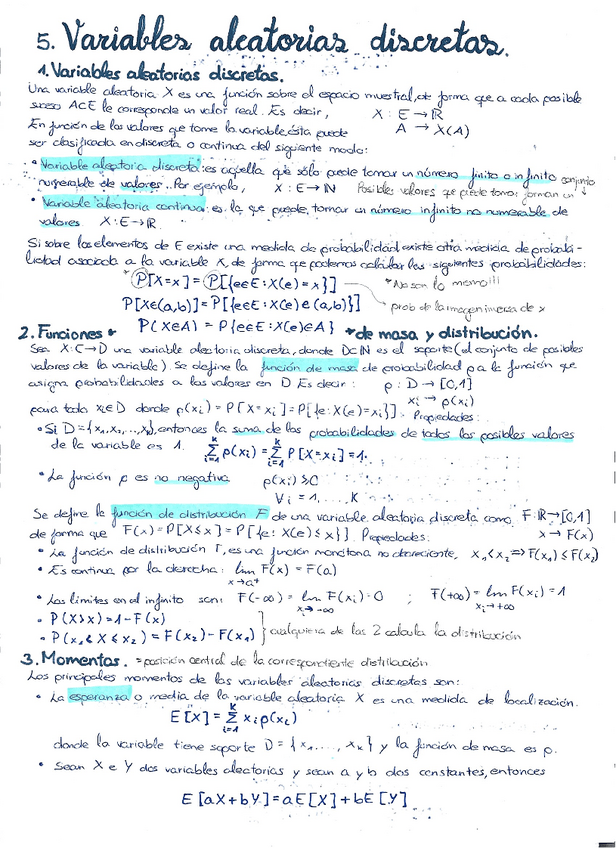 5. Variables aleatorias discretas.
1. Variables aleatorias discretas.
Una variable aleatoria X es una función sobre el espacio muestral, de forma que a cada posible
suceso A∈E le corresponde un valor real. Es decir, X : E → ℝ
En función de los valores que tome la variable, ésta puede A → X(A)
ser clasificada en discreta o continua del siguiente modo:
• Variable aleatoria discreta: es aquella que sólo puede tomar un número finito o infinito conjunto
numerable de valores. Por ejemplo, X : E → ℕ Posibles valores que puede tomar forman un ↓
• Variable aleatoria continua: es la que puede tomar un número infinito no numerable de
valores X : E → ℝ.
Si sobre los elementos de E existe una medida de probabilidad existe otra medida de probabi-
lidad asociada a la variable X, de forma que podemos calcular las siguientes probabilidades:
* P[X=x] = P[{e∈E : X(e) = x}] *No son lo mismo!!!
P[X∈(a,b)] = P[{e∈E : X(e) ∈ (a,b)}] prob de la imagen inversa de x
P(X∈A) = P{e∈E : X(e)∈A}
2. Funciones * *de masa y distribución.
Sea X: E→D una variable aleatoria discreta, donde D⊂ℕ es el soporte (el conjunto de posibles
valores de la variable). Se define la función de masa de probabilidad p a la función que
asigna probabilidades a los valores en D. Es decir: p : D → [0,1]
xi → p(xi)
para todo xi∈D donde p(xi) = P[X=xi] = P[{e: X(e)=xi}]. Propiedades:
• Si D={x1, x2, ..., xk}, entonces la suma de las probabilidades de todos los posibles valores
de la variable es 1. ∑_{i=1}^{k} p(xi) = ∑_{i=1}^{k} P[X=xi] = 1.
• La función p es no negativa p(xi) ≥ 0
∀i = 1, ..., K
Se define la función de distribución F de una variable aleatoria discreta como F: ℝ→[0,1]
de forma que F(x) = P[X≤x] = P[{e: X(e) ≤ x}]. Propiedades: x → F(x)
• La función de distribución F, es una función monótona no decreciente, x1<x2 ⇒ F(x1) ≤ F(x2)
• Es continua por la derecha: lim_{x→a⁺} F(x) = F(a)
• Los límites en el infinito son: F(-∞) = lim_{xi→-∞} F(xi) = 0 ; F(+∞) = lim_{xi→+∞} F(xi) = 1
• P(X>x) = 1-F(x)
• P(x1 < X ≤ x2) = F(x2) - F(x1) } cualquiera de las 2 calcula la distribución
3. Momentos. = posición central de la correspondiente distribución
Los principales momentos de las variables aleatorias discretas son:
• La esperanza o media de la variable aleatoria X es una medida de localización.
E[X] = ∑_{i=1}^{k} xi p(xi)
donde la variable tiene soporte D = {x1, ..., xk} y la función de masa es p.
• Sean X e Y dos variables aleatorias y sean a y b dos constantes, entonces
E[aX+bY] = aE[X] + bE[Y]